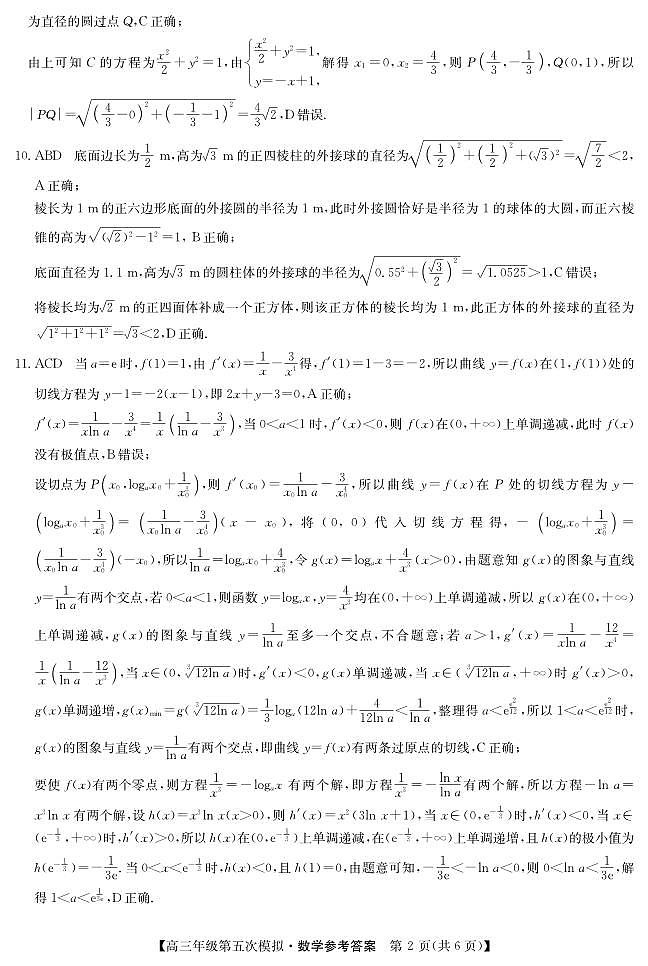 为直径的圆过点 Q,C 正确;
由上可知 C 的方程为 x²/2+y²=1,由 { x²/2+y²=1, y=-x+1, 解得 x₁=0,x₂=4/3,则 P(4/3,-1/3),Q(0,1),所以
|PQ|=√((4/3-0)²+(-1/3-1)²)=4/3√2,D 错误.
10. ABD 底面边长为 1/2 m,高为√3 m 的正四棱柱的外接球的直径为√((1/2)²+(1/2)²+(√3)²)=√(7/2)<2,
A 正确;
棱长为 1 m 的正六边形底面的外接圆的半径为 1 m,此时外接圆恰好是半径为 1 的球体的大圆,而正六棱
锥的高为√((√2)²-1²)=1, B 正确;
底面直径为 1.1 m,高为√3 m 的圆柱体的外接球的半径为√(0.55²+(√3/2)²)=√1.0525>1,C 错误;
将棱长均为√2 m 的正四面体补成一个正方体,则该正方体的棱长均为 1 m,此正方体的外接球的直径为
√(1²+1²+1²)=√3<2,D 正确.
11. ACD 当 a=e 时,f(1)=1,由 f′(x)=1/x-3/x⁴得,f′(1)=1-3=-2,所以曲线 y=f(x)在(1,f(1))处的
切线方程为 y-1=-2(x-1),即 2x+y-3=0,A 正确;
f′(x)=1/(xln a)-3/x⁴=1/x(1/ln a-3/x³),当 0<a<1 时,f′(x)<0,则 f(x)在(0,+∞)上单调递减,此时 f(x)
没有极值点,B 错误;
设切点为 P(x₀,logₐx₀+1/x₀³),则 f′(x₀)=1/(x₀ln a)-3/x₀⁴,所以曲线 y=f(x)在 P 处的切线方程为 y-
(logₐx₀+1/x₀³)=(1/(x₀ln a)-3/x₀⁴)(x-x₀),将(0,0)代入切线方程得,-(logₐx₀+1/x₀³)=
(1/(x₀ln a)-3/x₀⁴)(-x₀),所以1/ln a=logₐx₀+4/x₀³,令 g(x)=logₐx+4/x³(x>0),由题意知 g(x)的图象与直线
y=1/ln a有两个交点,若 0<a<1,则函数 y=logₐx,y=4/x³均在(0,+∞)上单调递减,所以 g(x)在(0,+∞)
上单调递减,g(x)的图象与直线 y=1/ln a至多一个交点,不合题意;若 a>1,g′(x)=1/(xln a)-12/x⁴=
1/x(1/ln a-12/x³),当 x∈(0,∛(12ln a))时,g′(x)<0,g(x)单调递减,当 x∈(∛(12ln a),+∞)时 g′(x)>0,
g(x)单调递增,g(x)min=g(∛(12ln a))=1/3logₐ(12ln a)+4/(12ln a)<1/ln a,整理得 a<e^(e²/12),所以 1<a<e^(e²/12)时,
g(x)的图象与直线 y=1/ln a有两个交点,即曲线 y=f(x)有两条过原点的切线,C 正确;
要使 f(x)有两个零点,则方程1/x³=-logₐx 有两个解,即方程1/x³=-ln x/ln a有两个解,所以方程-ln a=
x³ln x 有两个解,设 h(x)=x³ln x(x>0),则 h′(x)=x²(3ln x+1),当 x∈(0,e^(-1/3))时,h′(x)<0,当 x∈
(e^(-1/3),+∞)时,h′(x)>0,所以 h(x)在(0,e^(-1/3))上单调递减,在(e^(-1/3),+∞)上单调递增,且 h(x)的极小值为
h(e^(-1/3))=-1/3e.当 0<x<e^(-1/3)时,h(x)<0,且 h(1)=0,由题意可知,-1/3e<-ln a<0,则 0<ln a<1/3e,解
得 1<a<e^(1/3e),D 正确.
【高三年级第五次模拟·数学参考答案 第 2 页(共 6 页)】